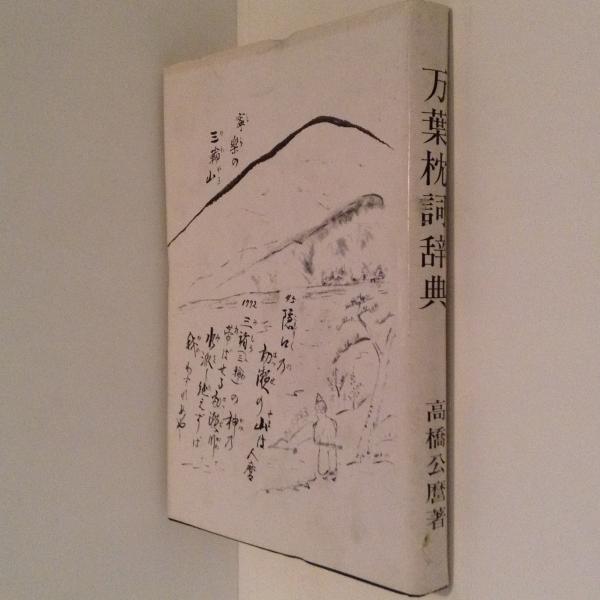 万葉枕詞辞典
高橋公麿著
寧楽の
三輪山
45 隠口の
初瀬の山は 人麿
1772
三諸(三輪)の神の
帯ばせる初瀬川
水脈し絶えずは